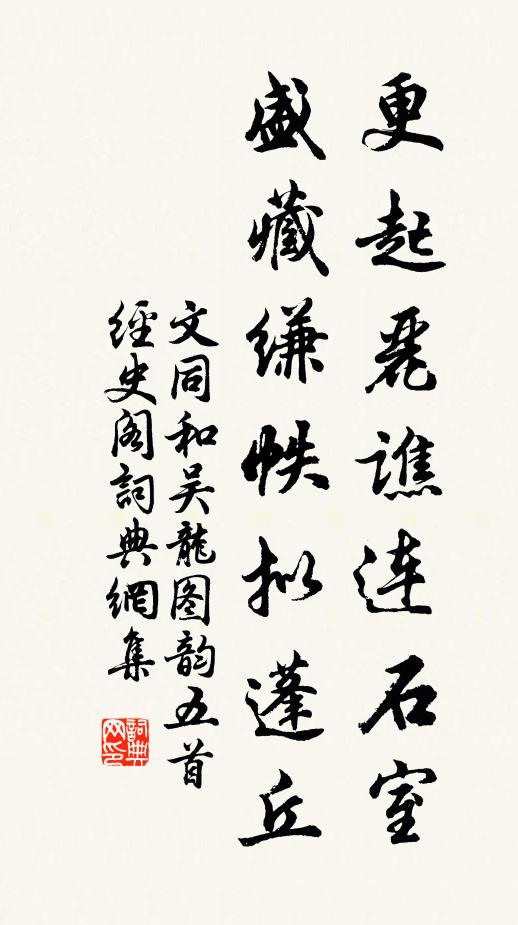 更起麗譙連石室
盛藏縑帙拟蓬丘
文同和吴龍图韵五首
經史阁詞典網集
詞典网印